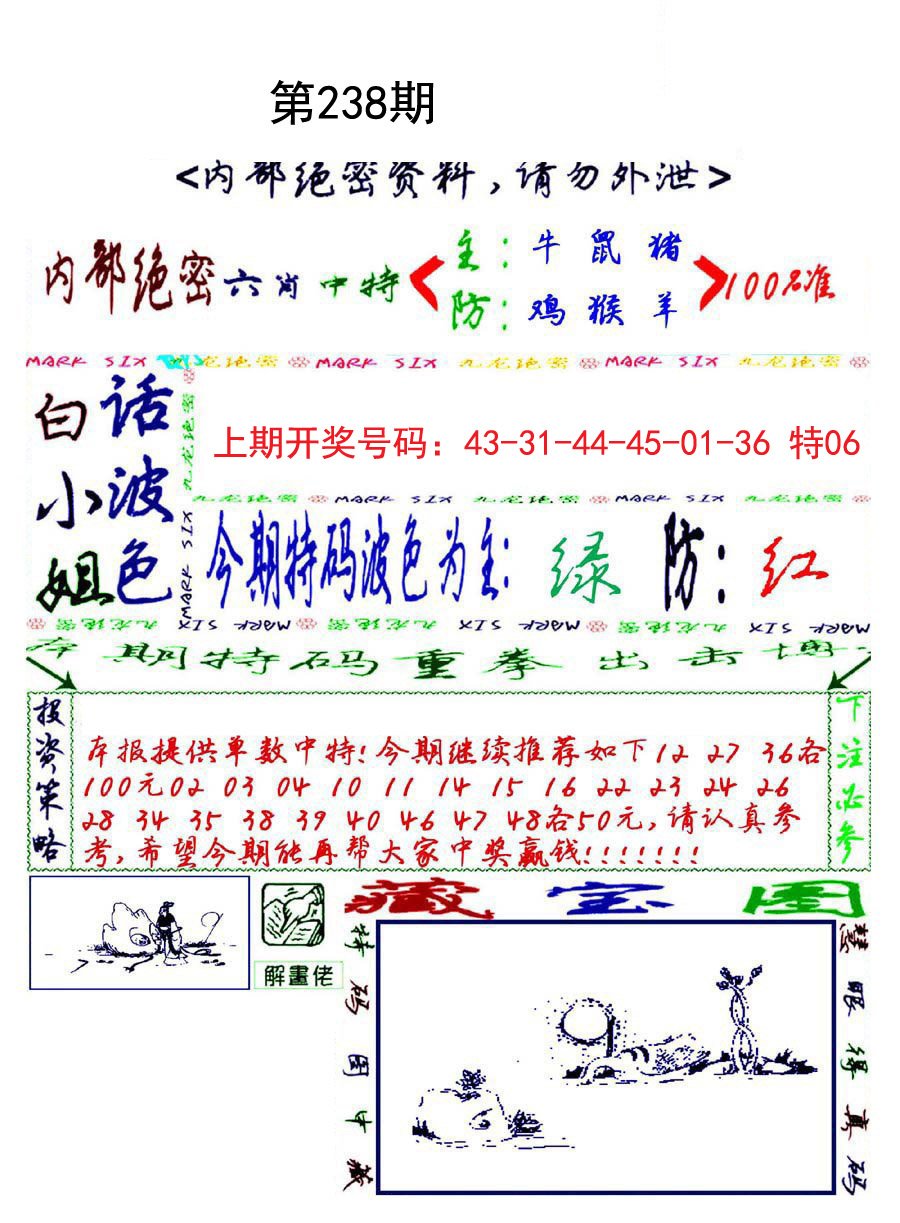 第238期
<内部绝密资料,请勿外泄>
内部绝密六肖中特
主:牛 鼠 猪
防:鸡 猴 羊
100%准
MARK SIX 九龙绝密 MARK SIX 九龙绝密 MARK SIX 九龙绝密
白小姐
话波色
九龙绝密
MARK SIX
上期开奖号码：43-31-44-45-01-36 特06
九龙绝密 MARK SIX 九龙绝密 MARK SIX 九龙绝密
今期特码波色为主:绿 防:红
九龙绝密 MARK SIX 九龙绝密 MARK SIX 九龙绝密 MARK SIX
本期特码重拳出击博
投资策略
本报提供单数中特!今期继续推荐如下12 27 36各
100元02 03 04 10 11 14 15 16 22 23 24 26
28 34 35 38 39 40 46 47 48各50元,请认真参
考,希望今期能再帮大家中奖赢钱!!!!!!!
下注必参
解畫佬
藏宝图
特码图中藏
慧眼得真码